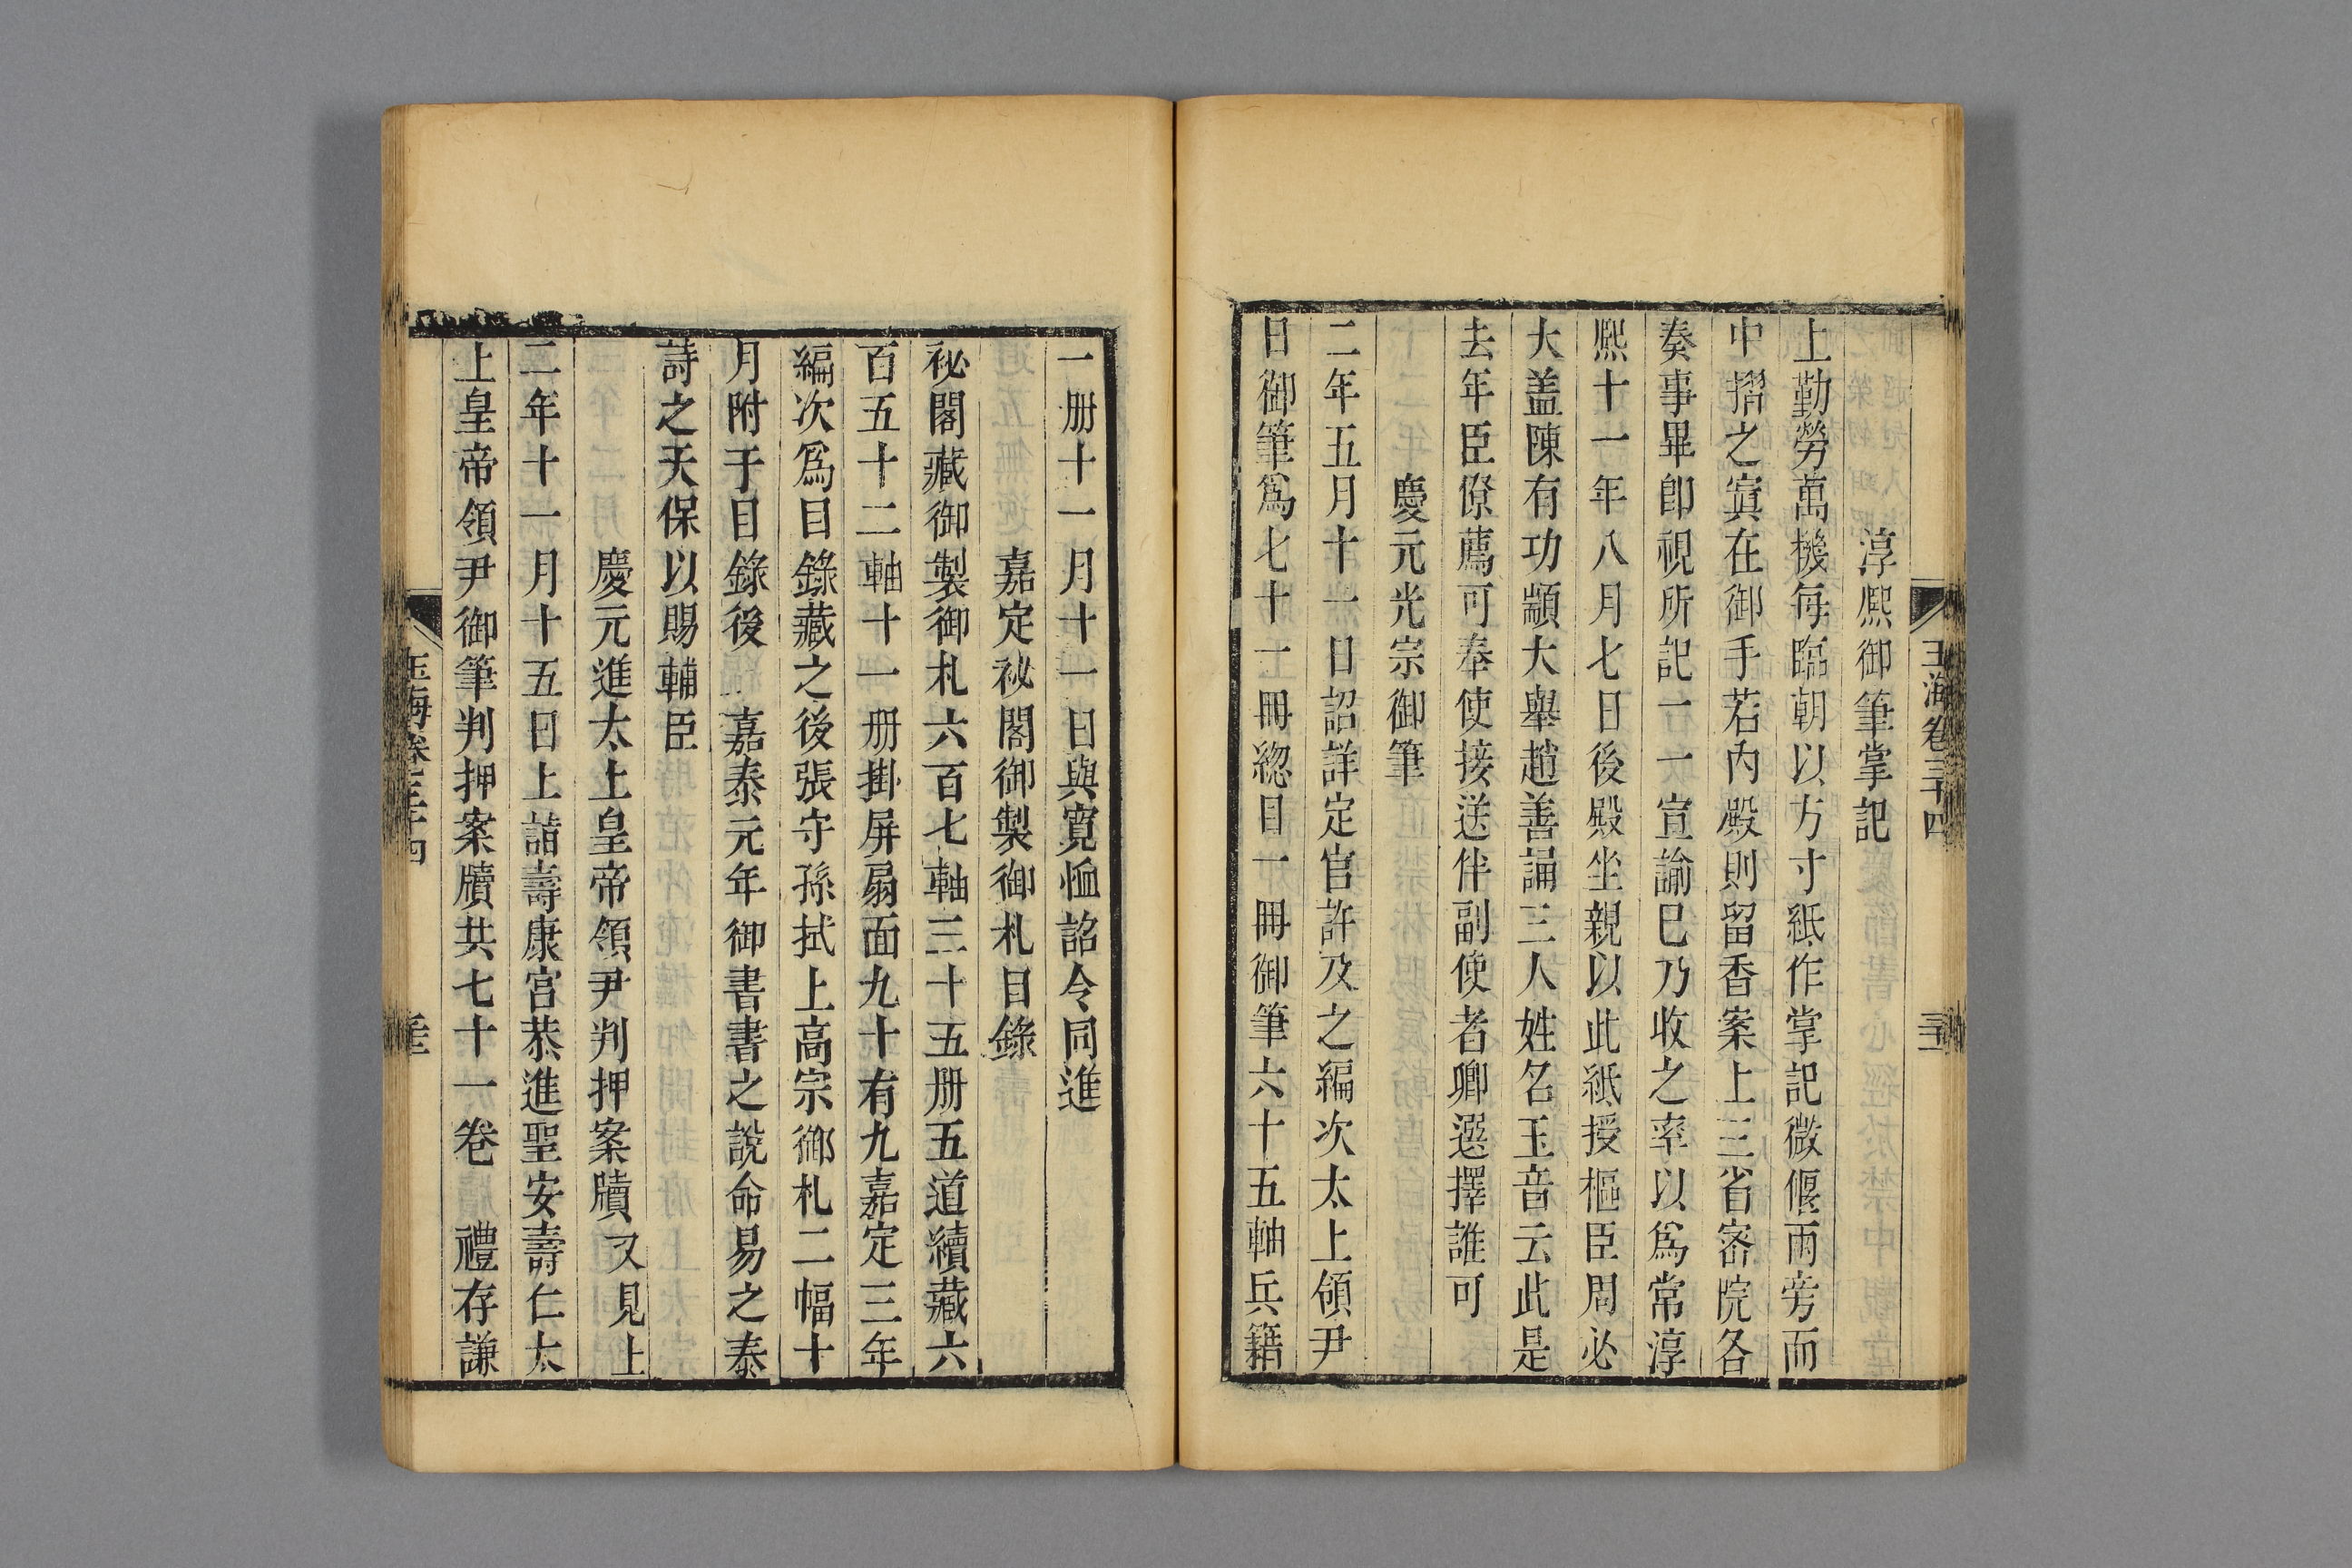 玉海卷三十四
淳熙御筆掌記
上勤勞萬機每臨朝以方寸紙作掌記微偃兩旁而
中摺之寘在御手若內殿則留香案上三省密院各
奏事畢卽視所記一一宣諭巳乃收之率以爲常淳
熙十一年八月七日後殿坐親以此紙授樞臣周必
大盖陳有功顓大舉趙善誦三人姓名玉音云此是
去年臣僚薦可奉使接送伴副使者卿選擇誰可
慶元光宗御筆
二年五月十一日詔詳定官許及之編次太上領尹
日御筆爲七十一冊緫目一冊御筆六十五軸兵籍
一册十一月十一日與寬恤詔令同進
嘉定祕閣御製御札目錄
祕閣藏御製御札六百七軸三十五册五道續藏六
百五十二軸十一册掛屏扇面九十有九嘉定三年
編次爲目錄藏之後張守孫拭上高宗御札二幅十
月附于目錄後 嘉泰元年御書書之說命易之泰
詩之天保以賜輔臣
慶元進太上皇帝領尹判押案牘 又見上
二年十一月十五日上詣壽康宮恭進聖安壽仁太
上皇帝領尹御筆判押案牘共七十一卷 禮存謙
玉海卷三十四